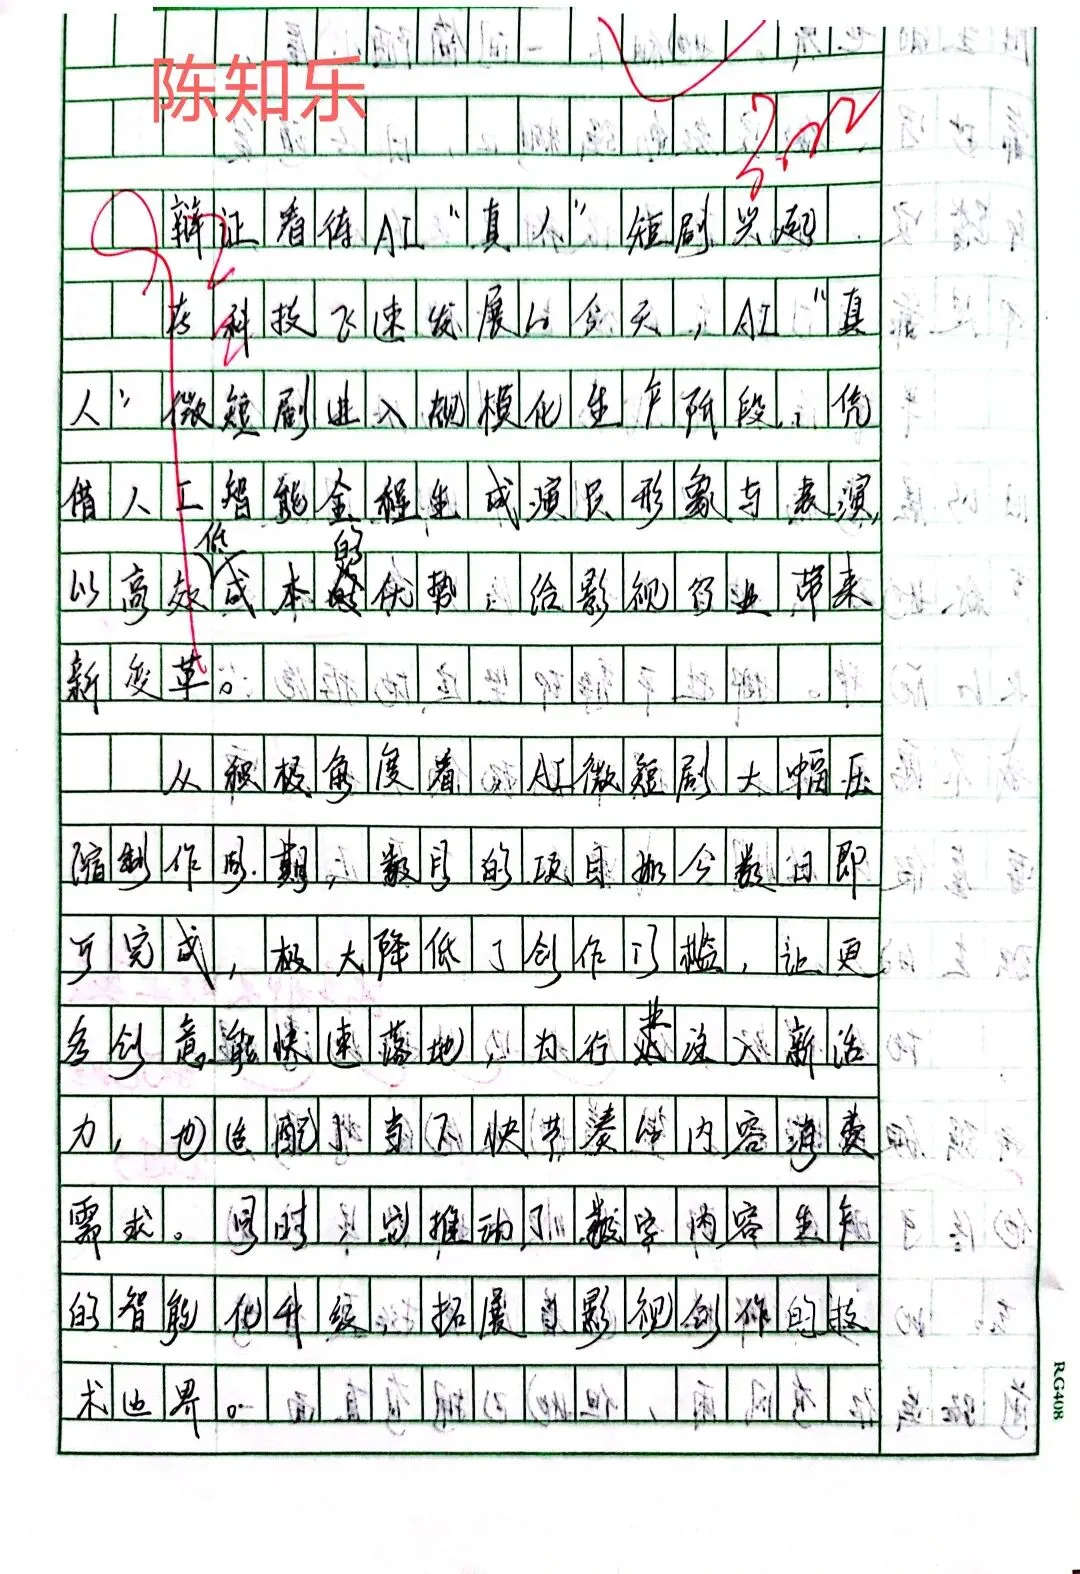 陈知乐
辩证看待AI“真人”短剧兴起
在科技飞速发展的今天，AI“真
人”微短剧进入规模化生产阶段，凭
借人工智能全程生成演员形象与表演，
以高效低成本的优势，给影视行业带来
新变革。
从积极角度看，AI微短剧大幅压
缩制作周期，数月的项目如今数日即
可完成，极大降低了创作门槛，让更
多创意能快速落地，为行业注入新活
力，也适配了当下快节奏的内容消费
需求。同时，它推动了数字内容生产
的智能化升级，拓展了影视创作的技
术边界。
RG408